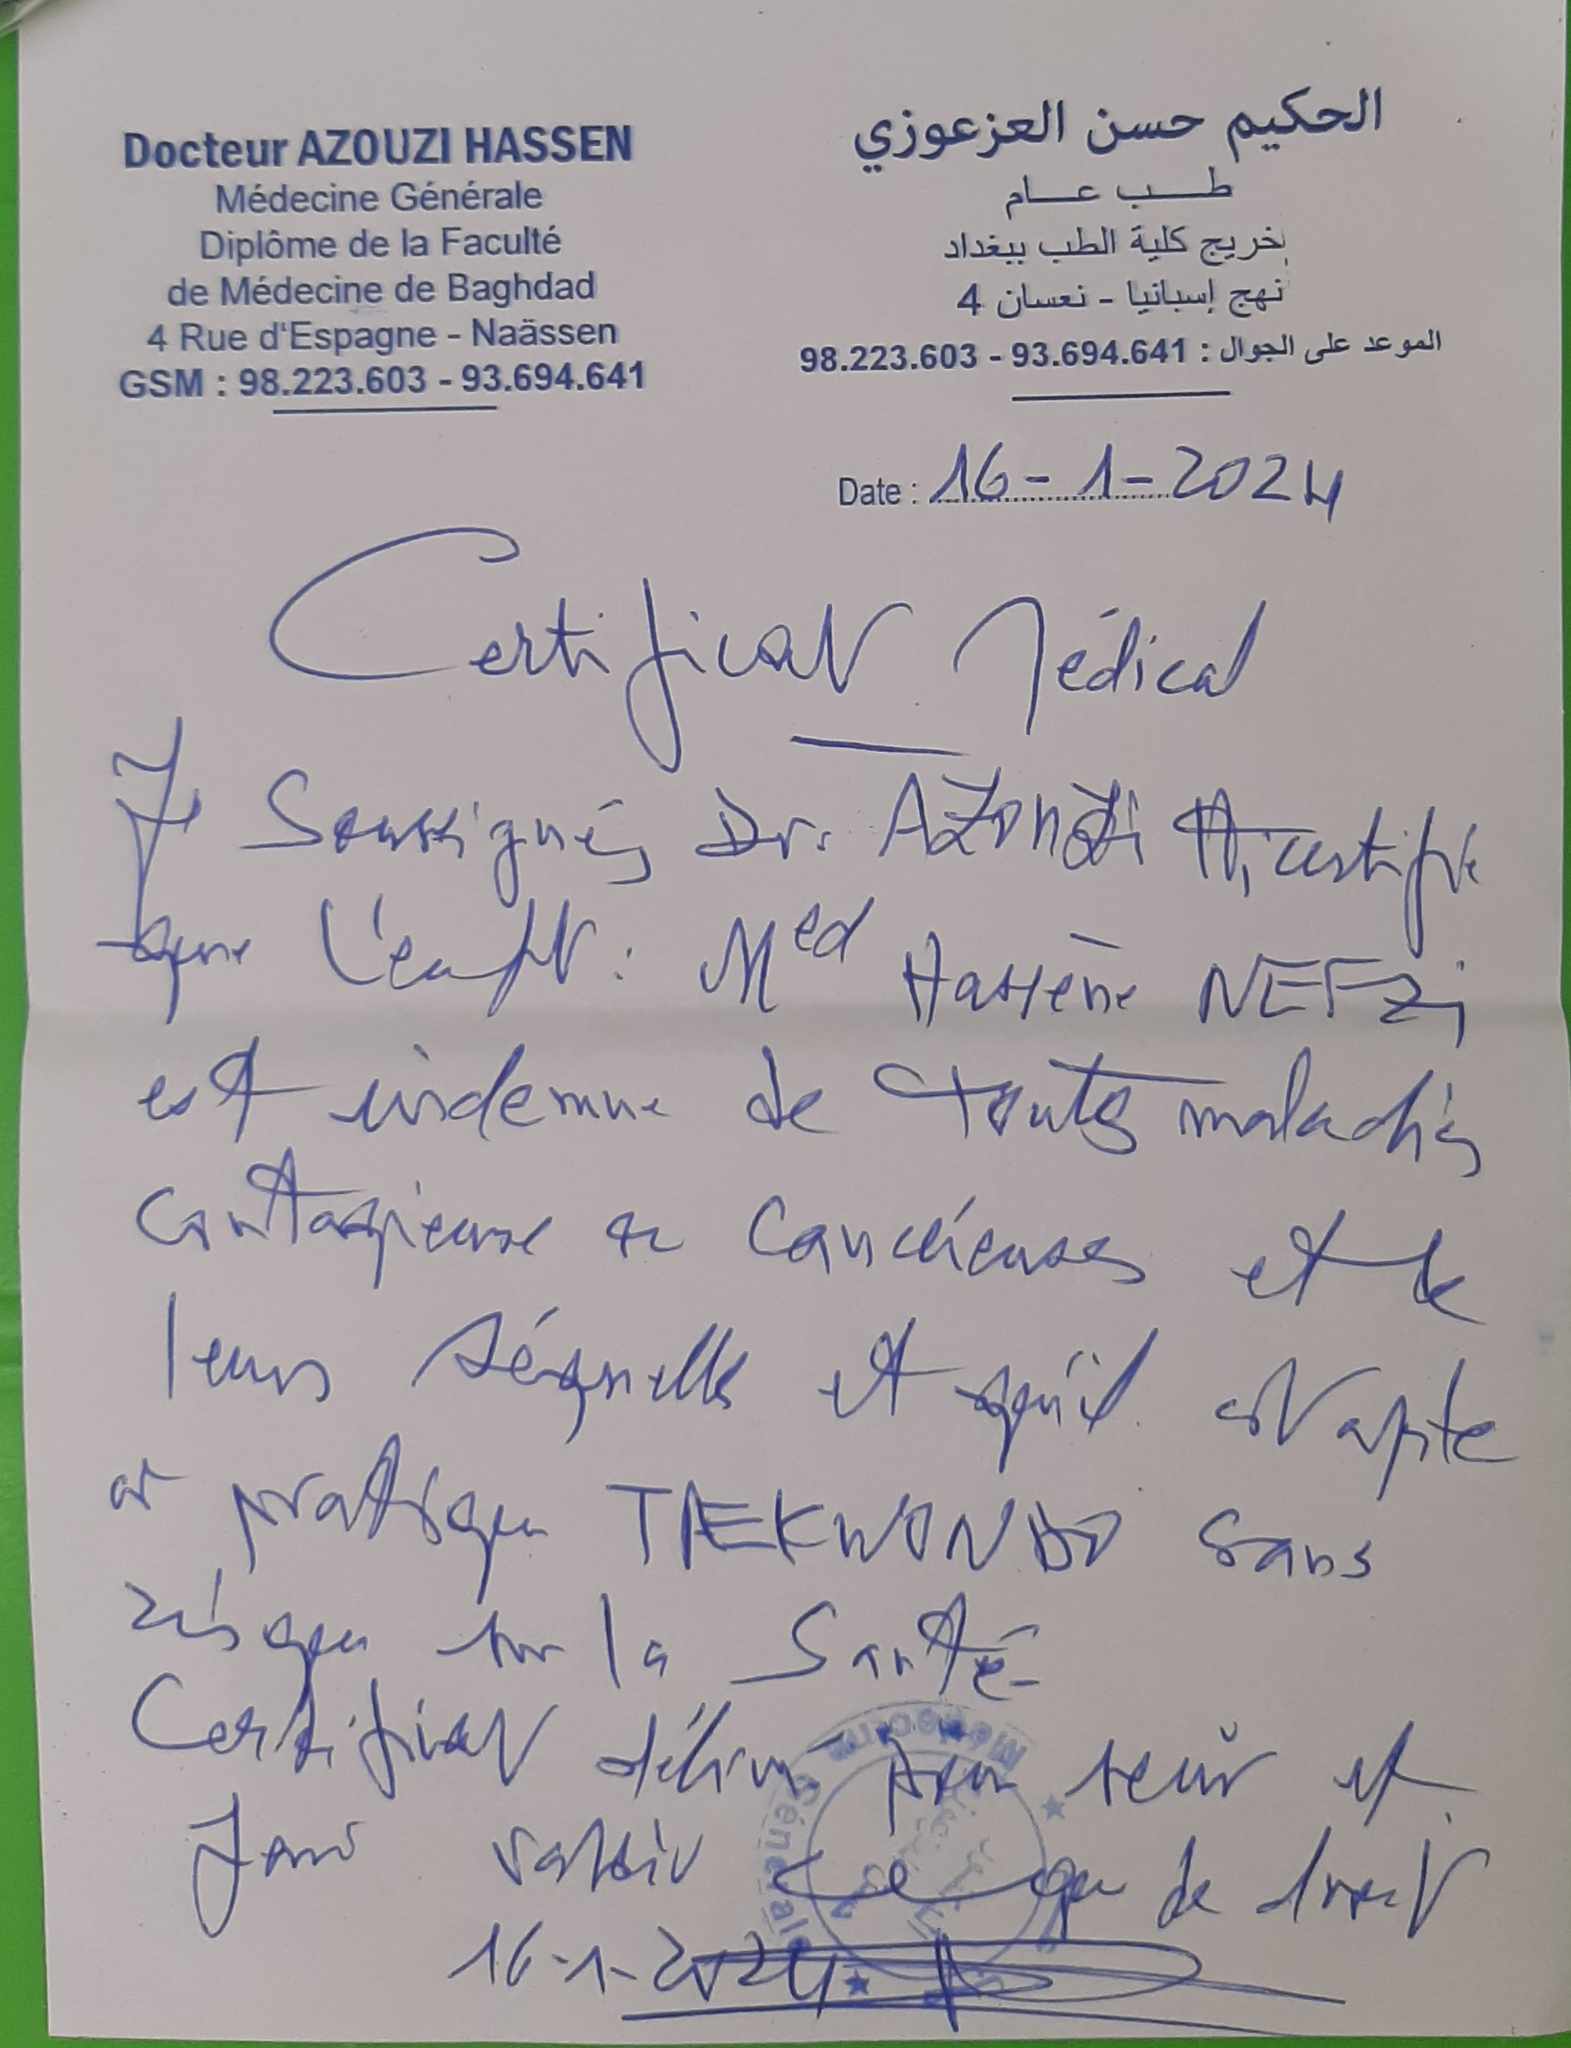 Docteur AZOUZI HASSEN
Médecine Générale
Diplôme de la Faculté
de Médecine de Baghdad
4 Rue d'Espagne - Naässen
GSM : 98.223.603 - 93.694.641
الحكيم حسن العزعوزي
طب عام
خريج كلية الطب ببغداد
4 نهج إسبانيا - نعسان
الموعد على الجوال : 93.694.641 - 98.223.603
Date : 16-1-2024
Certificat Médical
Je Soussignés Dr. AZOUZI H, certifie
que l'enft : Med Hassène NEFZi
est indemne de toutes maladies
contagieuse et cancéreuses et de
leurs séquelles et qu'il est apte
a pratiquer TAEKWONDO sans
risque sur la Santé
Certificat délivré pour servir et
faire valoir ce que de droit
16-1-2024
Médecine Générale